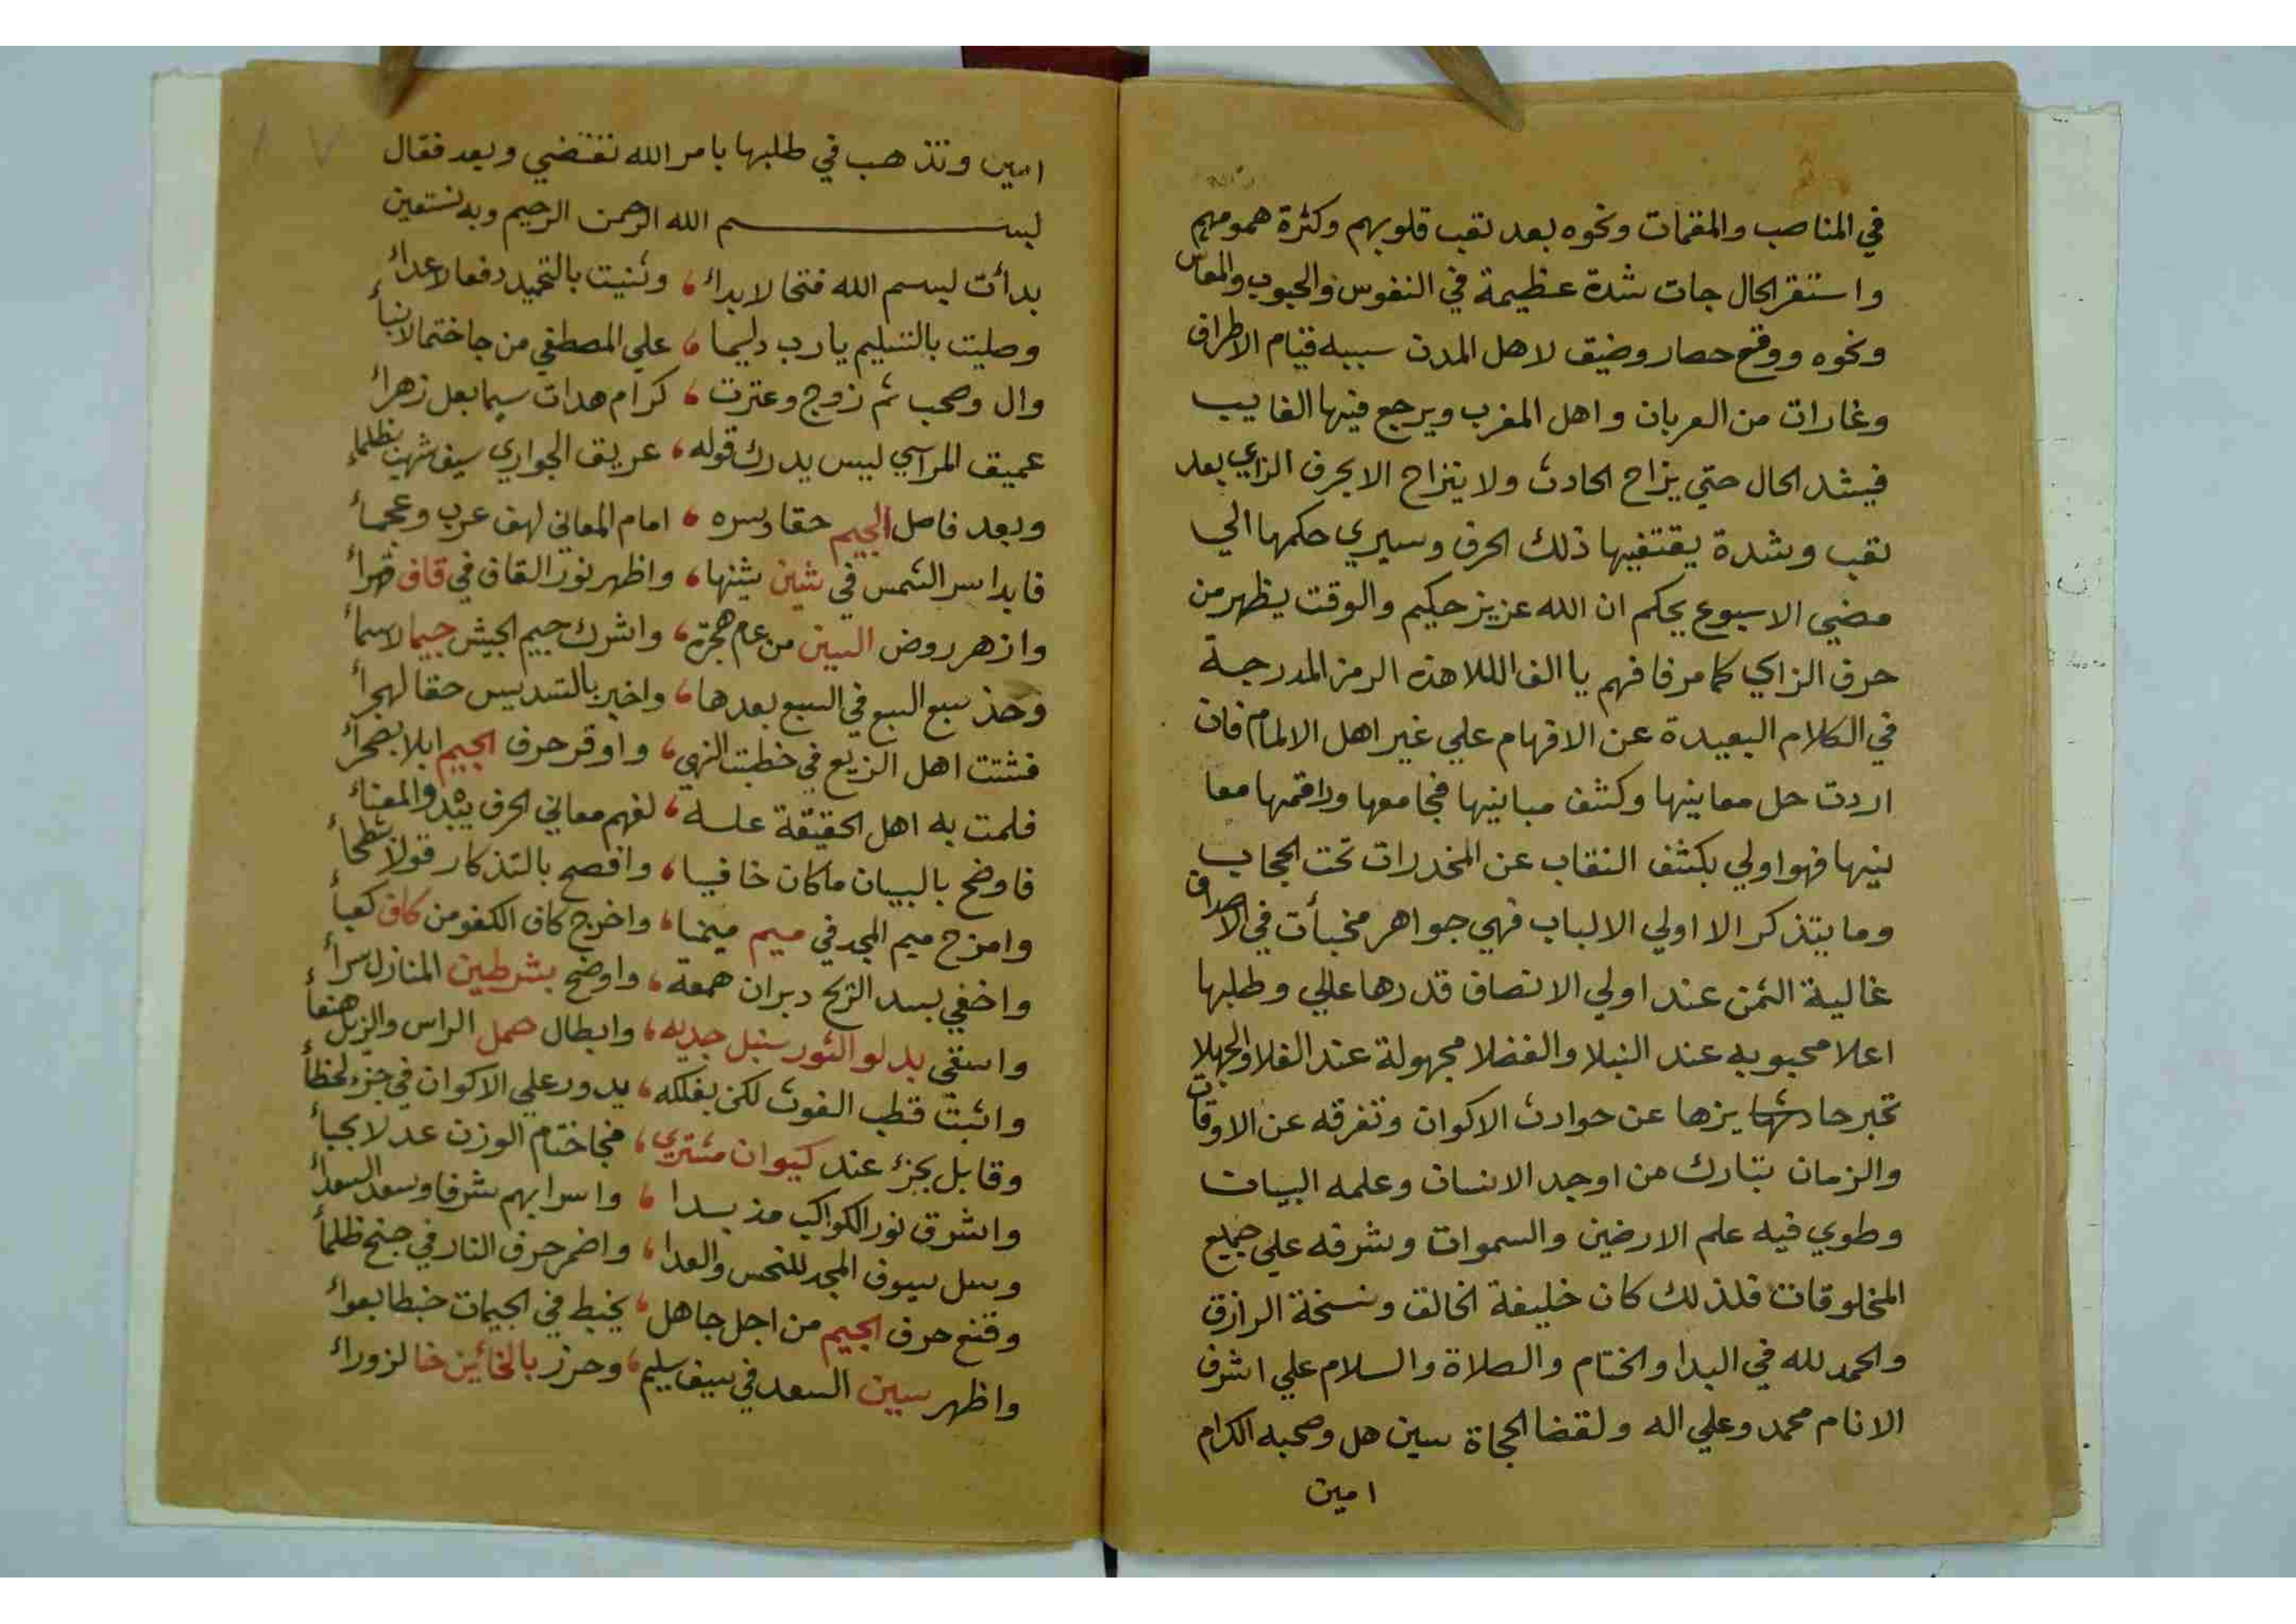 في المناصب والمقمات ونحوه بعد تعب قلوبهم وكثرة همومهم
واستقر الحال جات شدة عظيمة في النفوس والحبوب والمعاش
ونحوه ووقع حصار وضيق لاهل المدن سببه قيام الاطراف
وغارات من العربان واهل المغرب ويرجع فيها الغايب
فيشد الحال حتي يزاح الحادث ولا ينزاح الا بحرف الزاي بعد
تعب وشدة يقتفيها ذلك الحرف وسيري حكمها الي
مضي الاسبوع بحكم ان الله عزيز حكيم والوقت يظهر من
حرف الزاي كما مر فافهم يا الف اللا هذه الرمز المدرجة
في الكلام البعيدة عن الافهام علي غير اهل الالمام فان
اردت حل معانيها وكشف مبانيها فجامعها وراقمها معا
نيها فهو اولي بكشف النقاب عن المخدرات تحت الحجاب
وما يتذكر الا اولي الالباب فهي جواهر مخبأت في الاصداف
غالية الثمن عند اولي الانصاف قدرها عالي وطلبها
اعلا محبوبه عند النبلا والفضلا مجهولة عند الغلا والجهلا
تخبر حادثها يزها عن حوادث الاكوان وتفرقه عن الاوقات
والزمان تبارك من اوجد الانسان وعلمه البيان
وطوي فيه علم الارضين والسموات وشرفه علي جميع
المخلوقات فلذلك كان خليفة الخالق ونسخة الرازق
والحمد لله في البدا والختام والصلاة والسلام علي اشرف
الانام محمد وعلي اله ولقضا الحجاة سين هل وصحبه الكرام
امين
امين وتذهب في طلبها بامر الله تقتضي وبعد فقال
بسم الله الرحمن الرحيم وبه نستعين
بدأت ببسم الله فتحا لابداء، وثنيت بالتحميد دفعا لاعداء
وصليت بالتسليم يا رب دايما، علي المصطفي من جا ختما لانبياء
وال وصحب ثم زوج وعترت، كرام هدات سيما بعل زهراء
عميق المراسي ليس يدرك قوله، عريق الجواري سيف شهب بظلماء
وبعد فاصل الجيم حقا وسره، امام المعاني لهف عرب وعجماء
فابدا سر الشمس في شين شينها، واظهر نور القاف في قاف قهرأ
وازهر روض السين من عام هجرة، واشرك جيم الجيش جيما لاسمأ
وخذ سبع السبع في السبع بعدها، واخبر بالتسديس حقا لهجرأ
فشتت اهل الزيع في خطبت النهي، واوقر حرف الجيم ابلا بضجرأ
فلمت به اهل الحقيقة علسه، لفهم معاني الحرف يبدوا المعناء
فاوضح بالبيان ماكان خافيا، وافصح بالتذكار قولا شطحأ
وامزج ميم المجد في ميم ميمنا، واخرج كاف الكفو من كاف كعبأ
واخفي بسد الزيح دبران همعة، واوضح بشرطين المنازل سرأ
واستقي بدلو الثور سنبل جديه، وابطال حمل الراس والزبل هنعأ
واثبت قطب الغوث لكن بفلكه، يدور علي الاكوان في جزء لحظأ
وقابل بجزء عند كيوان مشتري، فجا ختام الوزن عدلا بجبأ
واشرق نور الكواكب مذ بدا، واسرا بهم شرفا وسعد السعدأ
وسل سيوف المجد للنحس والعدا، واضمر حرف النار في جنح ظلمأ
وقنع حرف الجيم من اجل جاهل، يخبط في الجيمات خبطا بعواء
واظهر سين السعد في سيف سليم، وحرز بالخائين خا لزوراء